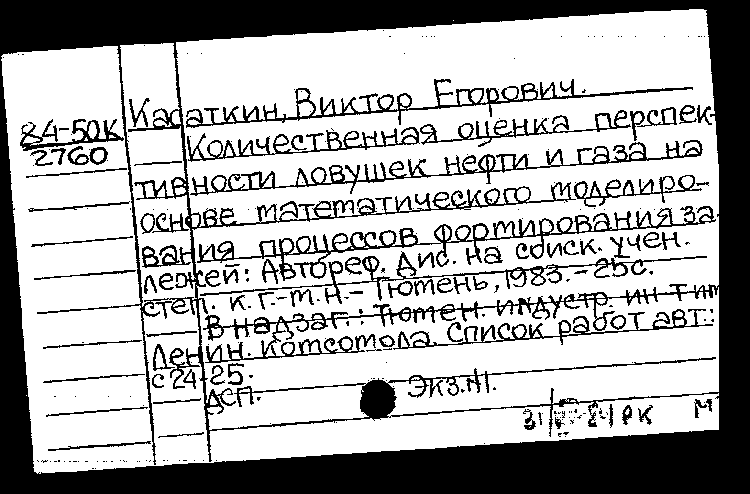 Касаткин, Виктор Егорович.
84-50К
2760
Количественная оценка перспек-
тивности ловушек нефти и газа на
основе математического моделиро-
вания процессов формирования за-
лежей: Автореф. дис. на соиск. учен.
степ. к.г.-м.н. - Тюмень, 1983. - 25с.
В надзаг.: Тюмен. индустр. ин-т им
Ленин. комсомола. Список работ авт.:
с 24-25.
ДСП.
Экз.№1.
84 РК М